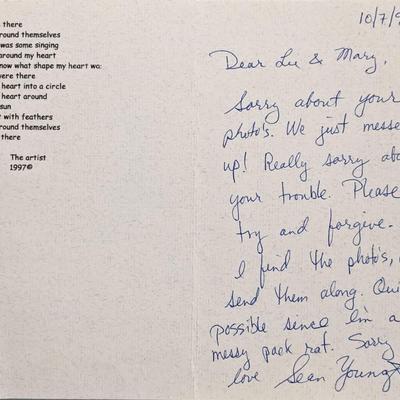 there
round themselves
was some singing
around my heart
now what shape my heart wa:
ere there
heart into a circle
heart around
sun
t with feathers
round themselves
there
The artist
1997©
10/7/9
Dear Lee & Mary,
Sorry about your
photo's. We just messe
up! Really sorry abo
your trouble. Please
try and forgive.
I find the photo's,
send them along. Qui
possible since I'm a
messy pack rat. Sorry
love Sean Young